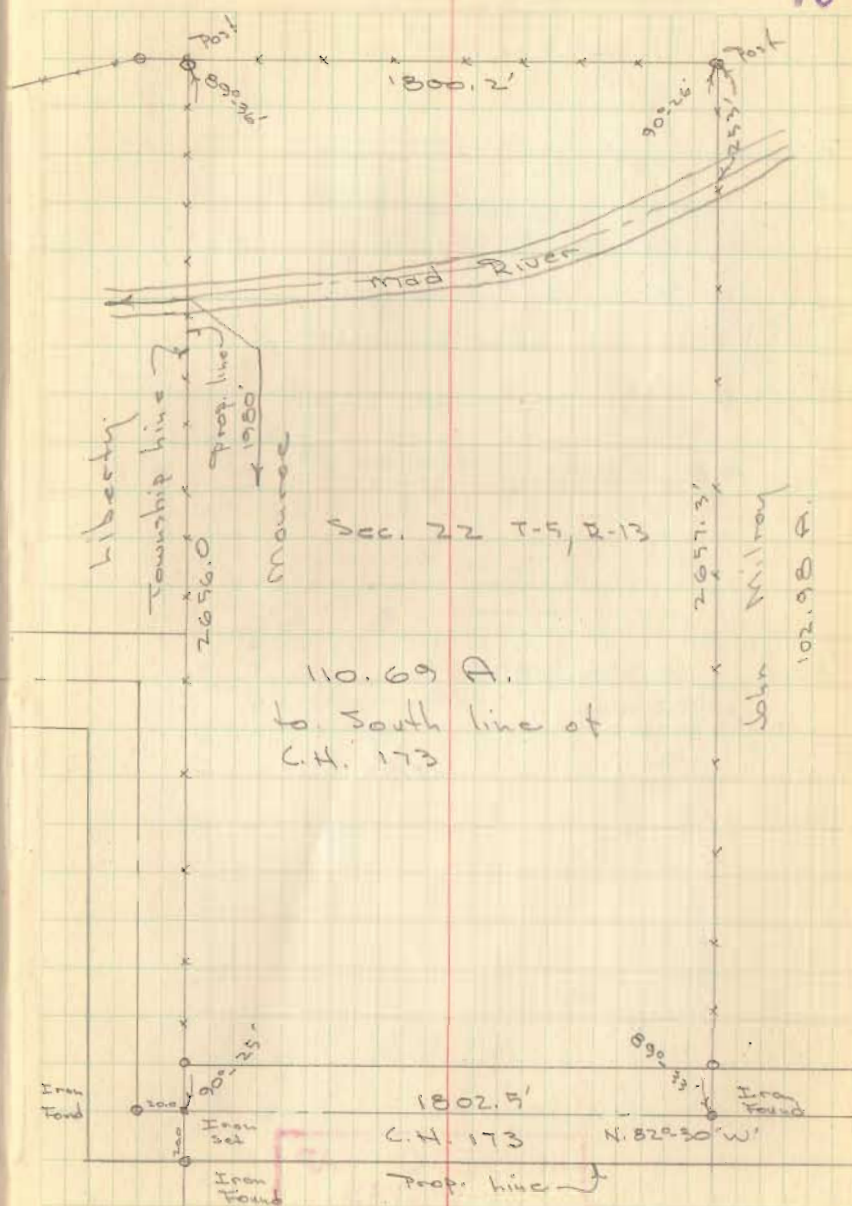 Post
Post
1800.2'
89°-36'
90°-26'
253'
Mad River
Liberty
Township Line
Prop. line
1980'
Monroe
2656.0
Sec. 22 T-5, R-13
2657.3'
John Milroy
102.98 A.
110.69 A.
to South line of
C.H. 173
90°-25'
89°-33'
Iron
Fond
20.0
Iron
set
20.0
1802.5'
Iron
Found
C.H. 173
N. 82°-30' W'
Iron
Found
Prop. Line